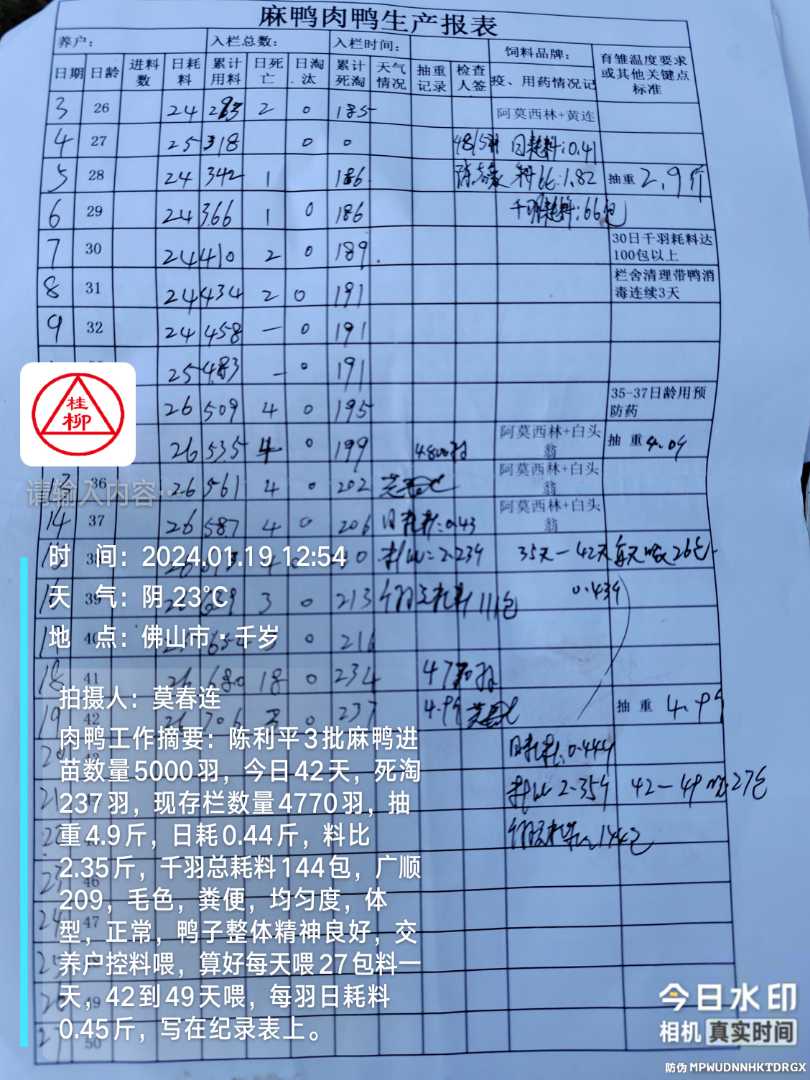 麻鸭肉鸭生产报表
养户: 入栏总数: 入栏时间: 饲料品牌: 育雏温度要求或其他关键点标准
日期 日龄 进料数 日耗料 累计用料 日死亡 日淘汰 累计死淘 天气情况 抽重记录 检查人签 疫、用药情况记
3 26 24 293 2 0 185 阿莫西林+黄连
4 27 25 318 0 0 4815羽 日耗料:0.41
5 28 24 342 1 186 料比:1.82 抽重 2.9斤
6 29 24 366 1 0 186 千羽耗料:66包
7 30 24 410 2 0 189 30日千羽耗料达100包以上
8 31 24 434 2 0 191 栏舍清理带鸭消毒连续3天
9 32 24 458 一 0 191
25 483 一 0 191
26 509 4 0 195 35-37日龄用预防药
26 535 4 0 199 4800羽 阿莫西林+白头翁 抽重 4.0斤
13 36 26 561 4 0 202 阿莫西林+白头翁
14 37 26 587 4 0 206 日耗料:0.43 阿莫西林+白头翁
料比:2.23斤 35天一42天每天喂26包
39 3 0 213 千羽总耗料111包 0.43斤
40 0 216
18 41 26 680 18 0 234
19 42 26 706 237 4.9斤 抽重 4.9斤
日耗料:0.44斤
料比2.35斤 42一49喂27包
千羽总耗料144包
46
24 47
49
27 50
桂柳
请输入内容…
时 间: 2024.01.19 12:54
天 气: 阴 23℃
地 点: 佛山市·千岁
拍摄人: 莫春连
肉鸭工作摘要: 陈利平3批麻鸭进
苗数量5000羽, 今日42天, 死淘
237羽, 现存栏数量4770羽, 抽
重4.9斤, 日耗0.44斤, 料比
2.35斤, 千羽总耗料144包, 广顺
209, 毛色, 粪便, 均匀度, 体
型, 正常, 鸭子整体精神良好, 交
养户控料喂, 算好每天喂27包料一
天, 42到49天喂, 每羽日耗料
0.45斤, 写在纪录表上。
今日水印
相机 真实时间
防伪 MPWUDNNHKTDRGX